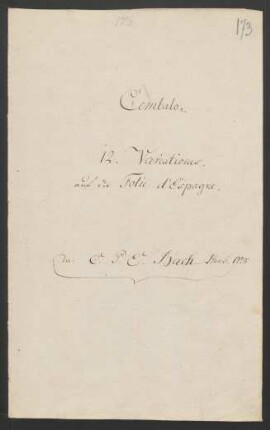 173
173
Cembalo.
12. Variationes
auf die Folie d'Espagne.
C. P. E. Bach